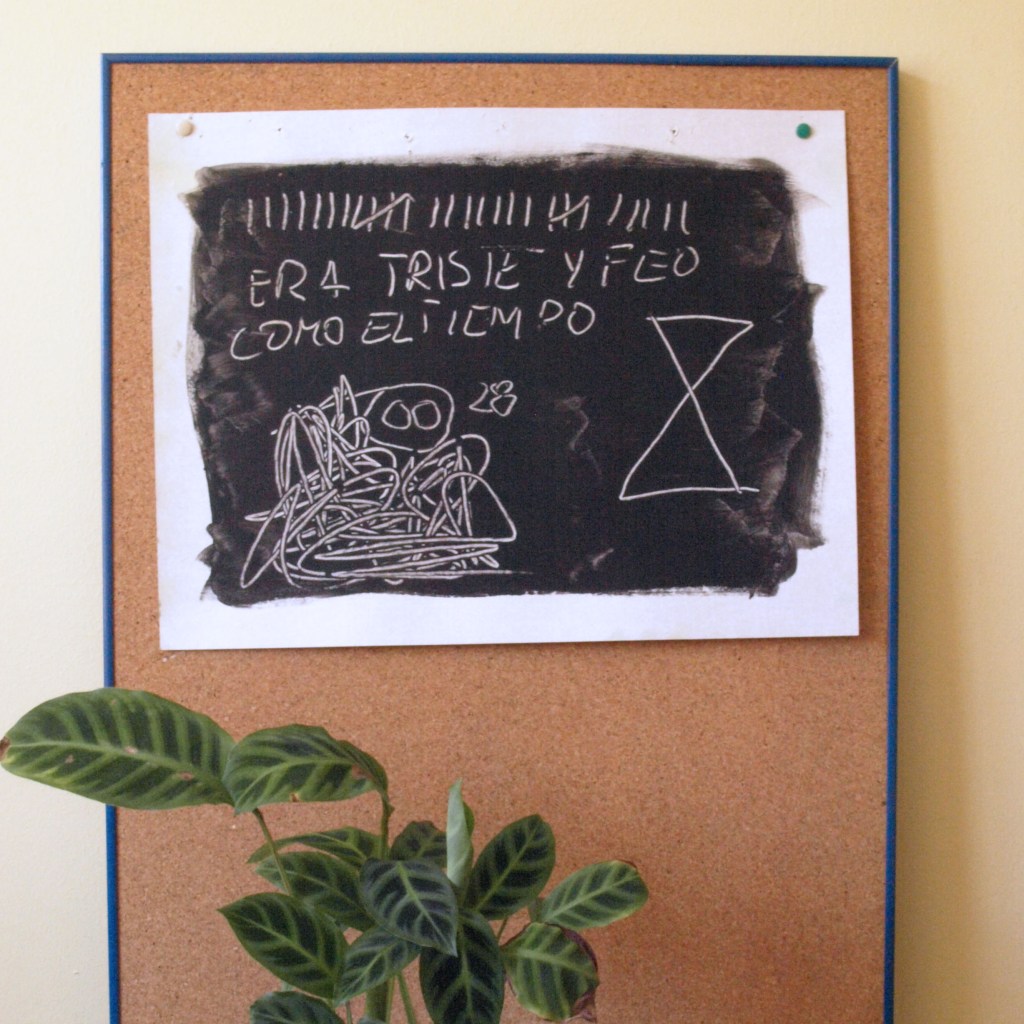 ERA TRISTE Y FEO
COMO EL TIEMPO
28